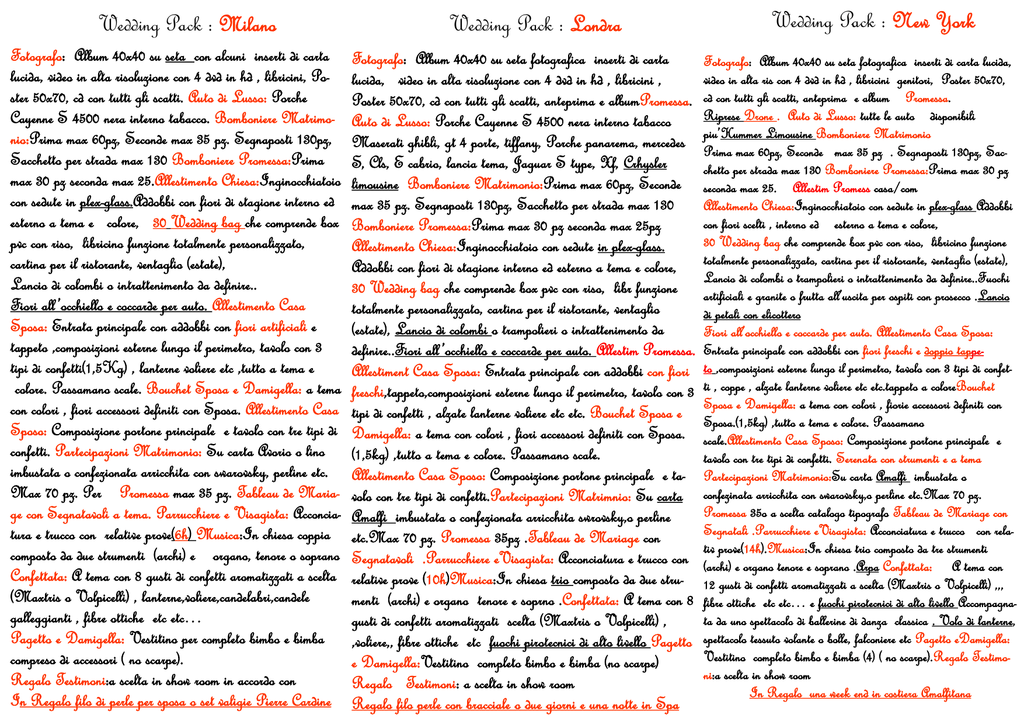 Wedding Pack : Milano
Fotografo: Album 40x40 su seta con alcuni inserti di carta
lucida, video in alta risoluzione con 4 dvd in hd , libricini, Po-
ster 50x70, cd con tutti gli scatti. Auto di Lusso: Porche
Cayenne S 4500 nera interno tabacco. Bomboniere Matrimo-
nio:Prima max 60pz, Seconde max 35 pz. Segnaposti 130pz,
Sacchetto per strada max 130 Bomboniere Promessa:Prima
max 30 pz seconda max 25.Allestimento Chiesa:Inginocchiatoio
con sedute in plex-glass.Addobbi con fiori di stagione interno ed
esterno a tema e colore, 30 Wedding bag che comprende box
pvc con riso, libricino funzione totalmente personalizzato,
cartina per il ristorante, ventaglio (estate),
Lancio di colombi o intrattenimento da definire..
Fiori all'occhiello e coccarde per auto. Allestimento Casa
Sposa: Entrata principale con addobbi con fiori artificiali e
tappeto ,composizioni esterne lungo il perimetro, tavolo con 3
tipi di confetti(1,5Kg) , lanterne voliere etc ,tutto a tema e
colore. Passamano scale. Bouchet Sposa e Damigella: a tema
con colori , fiori accessori definiti con Sposa. Allestimento Casa
Sposo: Composizione portone principale e tavolo con tre tipi di
confetti. Partecipazioni Matrimonio: Su carta Avorio o lino
imbustata o confezionata arricchita con swarovsky, perline etc.
Max 70 pz. Per Promessa max 35 pz. Tableau de Maria-
ge con Segnatavoli a tema. Parrucchiere e Visagista: Acconcia-
tura e trucco con relative prove(6h) Musica:In chiesa coppia
composto da due strumenti (archi) e organo, tenore o soprano
Confettata: A tema con 8 gusti di confetti aromatizzati a scelta
(Maxtris o Volpicelli) , lanterne,voliere,candelabri,candele
galleggianti , fibre ottiche etc etc...
Pagetto e Damigella: Vestitino per completo bimbo e bimba
compreso di accessori ( no scarpe).
Regalo Testimoni:a scelta in show room in accordo con
In Regalo filo di perle per sposa o set valigie Pierre Cardine
Wedding Pack : Londra
Fotografo: Album 40x40 su seta fotografica inserti di carta
lucida, video in alta risoluzione con 4 dvd in hd , libricini ,
Poster 50x70, cd con tutti gli scatti, anteprima e albumPromessa.
Auto di Lusso: Porche Cayenne S 4500 nera interno tabacco
Maserati ghibli, gt 4 porte, tiffany, Porche panarema, mercedes
S, Cls, E cabrio, lancia tema, Jaguar S type, Xf, Crhysler
limousine Bomboniere Matrimonio:Prima max 60pz, Seconde
max 35 pz. Segnaposti 130pz, Sacchetto per strada max 130
Bomboniere Promessa:Prima max 30 pz seconda max 25pz
Allestimento Chiesa:Inginocchiatoio con sedute in plex-glass.
Addobbi con fiori di stagione interno ed esterno a tema e colore,
30 Wedding bag che comprende box pvc con riso, libr funzione
totalmente personalizzato, cartina per il ristorante, ventaglio
(estate), Lancio di colombi o trampolieri o intrattenimento da
definire..Fiori all'occhiello e coccarde per auto. Allestim Promessa.
Allestiment Casa Sposa: Entrata principale con addobbi con fiori
freschi,tappeto,composizioni esterne lungo il perimetro, tavolo con 3
tipi di confetti , alzate lanterne voliere etc etc. Bouchet Sposa e
Damigella: a tema con colori , fiori accessori definiti con Sposa.
(1,5kg) ,tutto a tema e colore. Passamano scale.
Allestimento Casa Sposo: Composizione portone principale e ta-
volo con tre tipi di confetti.Partecipazioni Matrimnio: Su carta
Amalfi imbustata o confezionata arricchita swrovsky,o perline
etc.Max 70 pz. Promessa 35pz .Tableau de Mariage con
Segnatavoli .Parrucchiere e Visagista: Acconciatura e trucco con
relative prove (10h)Musica:In chiesa trio composto da due stru-
menti (archi) e organo tenore e soprno .Confettata: A tema con 8
gusti di confetti aromatizzati scelta (Maxtris o Volpicelli) ,
,voliere,, fibre ottiche etc fuochi pirotecnici di alto livello Pagetto
e Damigella:Vestitino completo bimbo e bimba (no scarpe)
Regalo Testimoni: a scelta in show room
Regalo filo perle con bracciale o due giorni e una notte in Spa
Wedding Pack : New York
Fotografo: Album 40x40 su seta fotografica inserti di carta lucida,
video in alta ris con 4 dvd in hd , libricini genitori, Poster 50x70,
cd con tutti gli scatti, anteprima e album Promessa.
Riprese Drone . Auto di Lusso: tutte le auto disponibili
piu'Hummer Limousine Bomboniere Matrimonio
Prima max 60pz, Seconde max 35 pz . Segnaposti 130pz, Sac-
chetto per strada max 130 Bomboniere Promessa:Prima max 30 pz
seconda max 25. Allestim Promess casa/com
Allestimento Chiesa:Inginocchiatoio con sedute in plex-glass Addobbi
con fiori scelti , interno ed esterno a tema e colore,
30 Wedding bag che comprende box pvc con riso, libricino funzione
totalmente personalizzato, cartina per il ristorante, ventaglio (estate),
Lancio di colombi o trampolieri o intrattenimento da definire..Fuochi
artificiali e granite o frutta all'uscita per ospiti con prosecco .Lancio
di petali con elicottero
Fiori all'occhiello e coccarde per auto. Allestimento Casa Sposa:
Entrata principale con addobbi con fiori freschi e doppio tappe-
to ,composizioni esterne lungo il perimetro, tavolo con 3 tipi di confet-
ti , coppe , alzate lanterne voliere etc etc.tappeto a coloreBouchet
Sposa e Damigella: a tema con colori , fiorie accessori definiti con
Sposa.(1,5kg) ,tutto a tema e colore. Passamano
scale.Allestimento Casa Sposo: Composizione portone principale e
tavolo con tre tipi di confetti. Serenata con strumenti e a tema
Partecipazioni Matrimonio:Su carta Amalfi imbustata o
confezinata arricchita con swarovsky,o perline etc.Max 70 pz.
Promessa 35o a scelta catalogo tipografo Tableau de Mariage con
Segnatali .Parrucchiere e Visagista: Acconciatura e trucco con rela-
tiv prove(14h).Musica:In chiesa trio composto da tre strumenti
(archi) e organo tenore e soprano .Arpa Confettata: A tema con
12 gusti di confetti aromatizzati a scelta (Maxtris o Volpicelli) ,,,
fibre ottiche etc etc... e fuochi pirotecnici di alto livello Accompagna-
ta da uno spettacolo di ballerine di danza classica . Volo di lanterne,
spettacolo tessuto volante o bolle, falconiere etc Pagetto e Damigella:
Vestitino completo bimbo e bimba (4) ( no scarpe).Regalo Testimo-
ni:a scelta in show room
In Regalo una week end in costiera Amalfitana